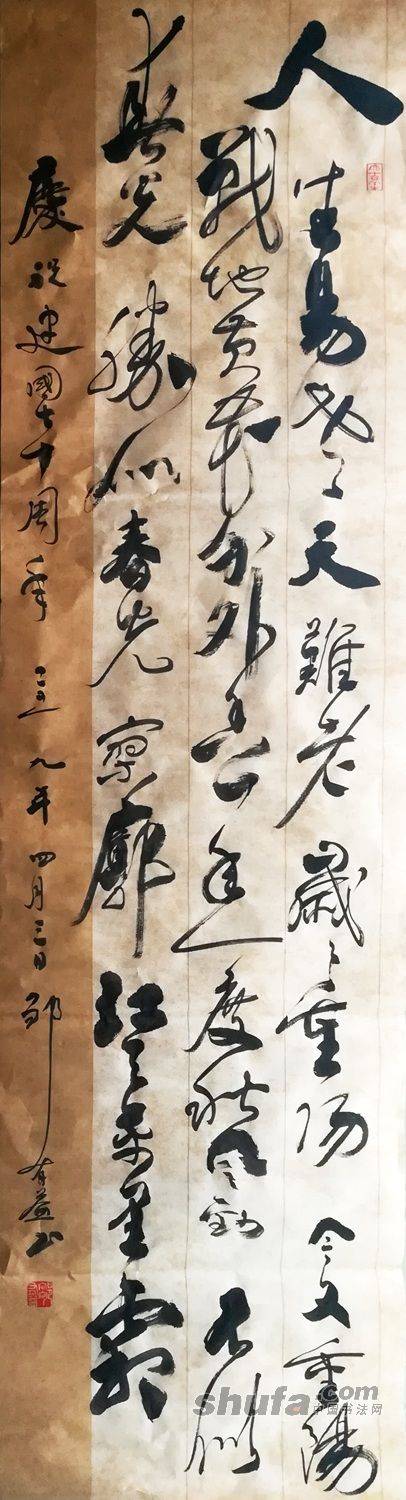 人生易老天難老歲〻重阳今又重陽
戰地黄花分外香一年一度秋風勁不似
春光勝似春光寥廓江天萬里霜
慶祝建國七十周年二〇一九年四月三日邹有益书
shufa.com
中国书法网